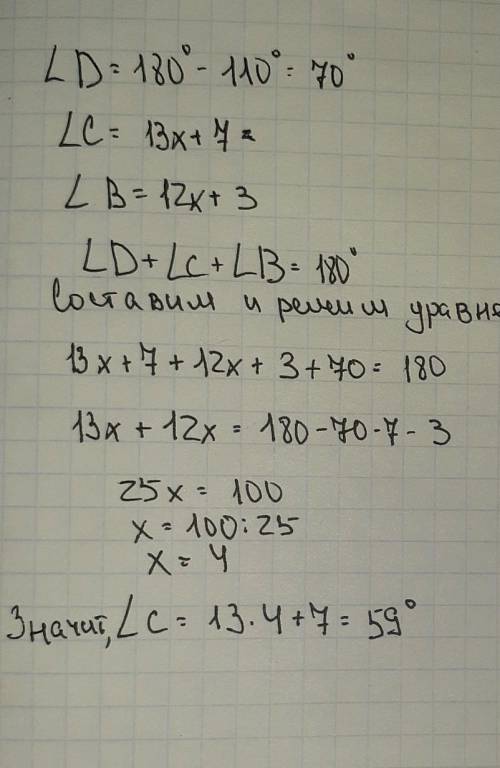 ∠D = 180° - 110° = 70°
∠C = 13x + 7 =
∠B = 12x + 3
∠D + ∠C + ∠B = 180°
Составим и решим уравне
13x + 7 + 12x + 3 + 70 = 180
13x + 12x = 180 - 70 - 7 - 3
25x = 100
x = 100 : 25
x = 4
Значит, ∠C = 13 · 4 + 7 = 59°